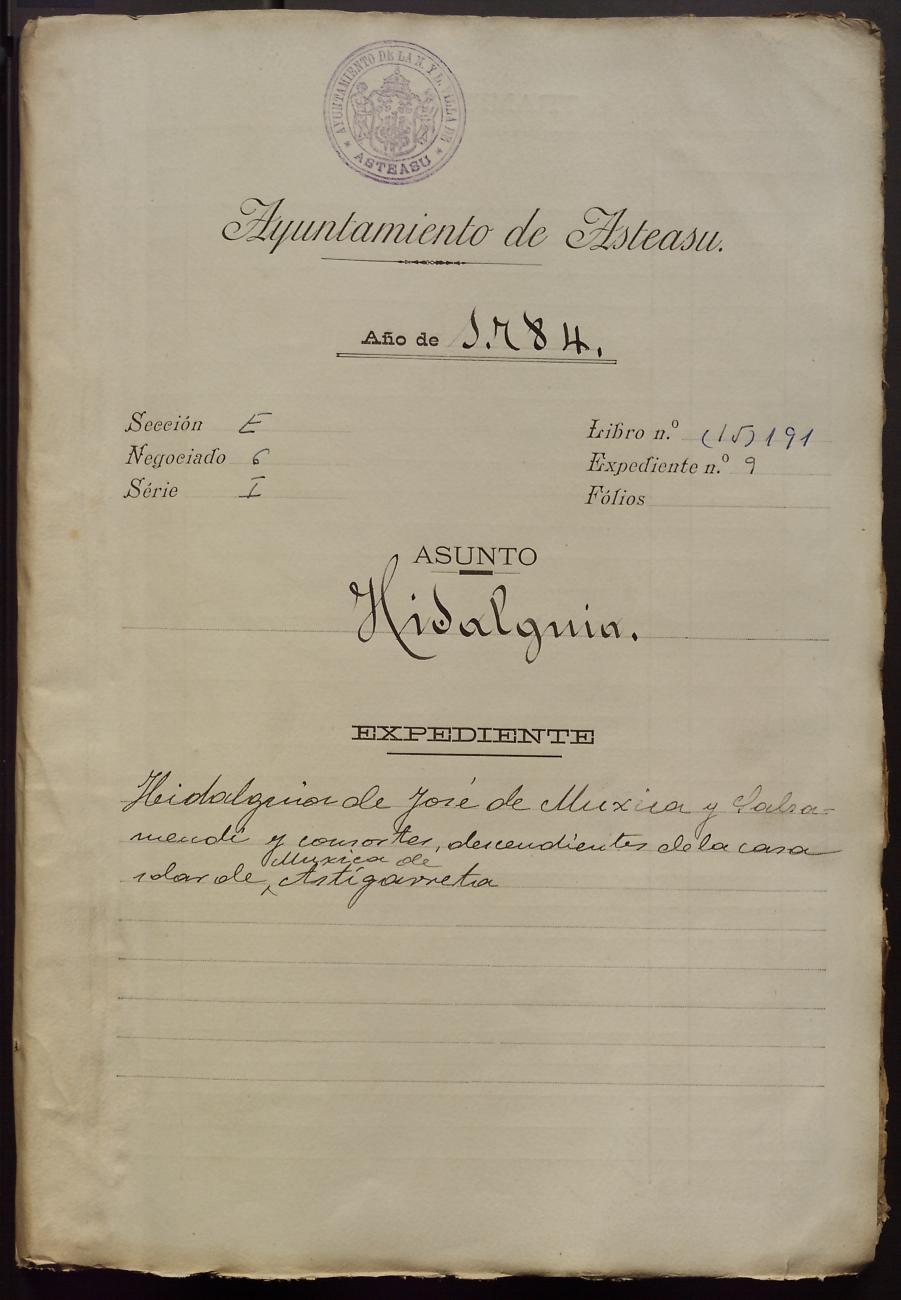 AYUNTAMIENTO DE LA N. Y L. VILLA DE
★ ASTEASU ★
Ayuntamiento de Asteasu.
Año de 1.784.
Sección E
Libro n.º (15) 191
Negociado 6
Expediente n.º 9
Série I
Fólios
ASUNTO
Hidalguia.
EXPEDIENTE
Hidalguia de José de Muxica y Salsa-
mendi y consortes, descendientes de la casa
Muxica de
solar de ‸ Astigarreta